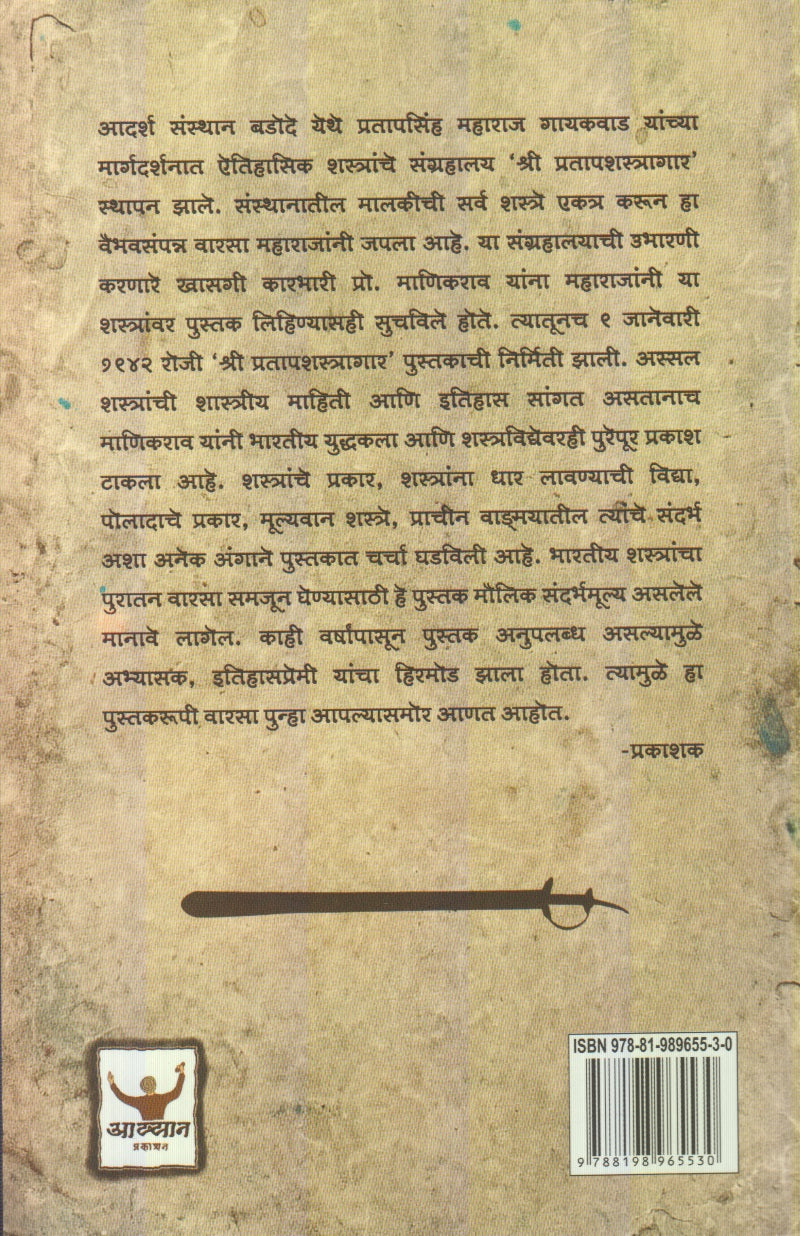 आदर्श संस्थान बडोदे येथे प्रतापसिंह महाराज गायकवाड यांच्या
मार्गदर्शनात ऐतिहासिक शस्त्रांचे संग्रहालय ‘श्री प्रतापशस्त्रागार’
स्थापन झाले. संस्थानातील मालकीची सर्व शस्त्रे एकत्र करून हा
वैभवसंपन्न वारसा महाराजांनी जपला आहे. या संग्रहालयाची उभारणी
करणारे खासगी कारभारी प्रो. माणिकराव यांना महाराजांनी या
शस्त्रांवर पुस्तक लिहिण्यासही सुचविले होते. त्यातूनच १ जानेवारी
१९४२ रोजी ‘श्री प्रतापशस्त्रागार’ पुस्तकाची निर्मिती झाली. अस्सल
शस्त्रांची शास्त्रीय माहिती आणि इतिहास सांगत असतानाच
माणिकराव यांनी भारतीय युद्धकला आणि शस्त्रविद्येवरही पुरेपूर प्रकाश
टाकला आहे. शस्त्रांचे प्रकार, शस्त्रांना धार लावण्याची विद्या,
पोलादाचे प्रकार, मूल्यवान शस्त्रे, प्राचीन वाङ्मयातील त्यांचे संदर्भ
अशा अनेक अंगाने पुस्तकात चर्चा घडविली आहे. भारतीय शस्त्रांचा
पुरातन वारसा समजून घेण्यासाठी हे पुस्तक मौलिक संदर्भमूल्य असलेले
मानावे लागेल. काही वर्षांपासून पुस्तक अनुपलब्ध असल्यामुळे
अभ्यासक, इतिहासप्रेमी यांचा हिरमोड झाला होता. त्यामुळे हा
पुस्तकरूपी वारसा पुन्हा आपल्यासमोर आणत आहोत.
-प्रकाशक
ISBN 978-81-989655-3-0
9 788198 965530
आव्हान
प्रकाशन